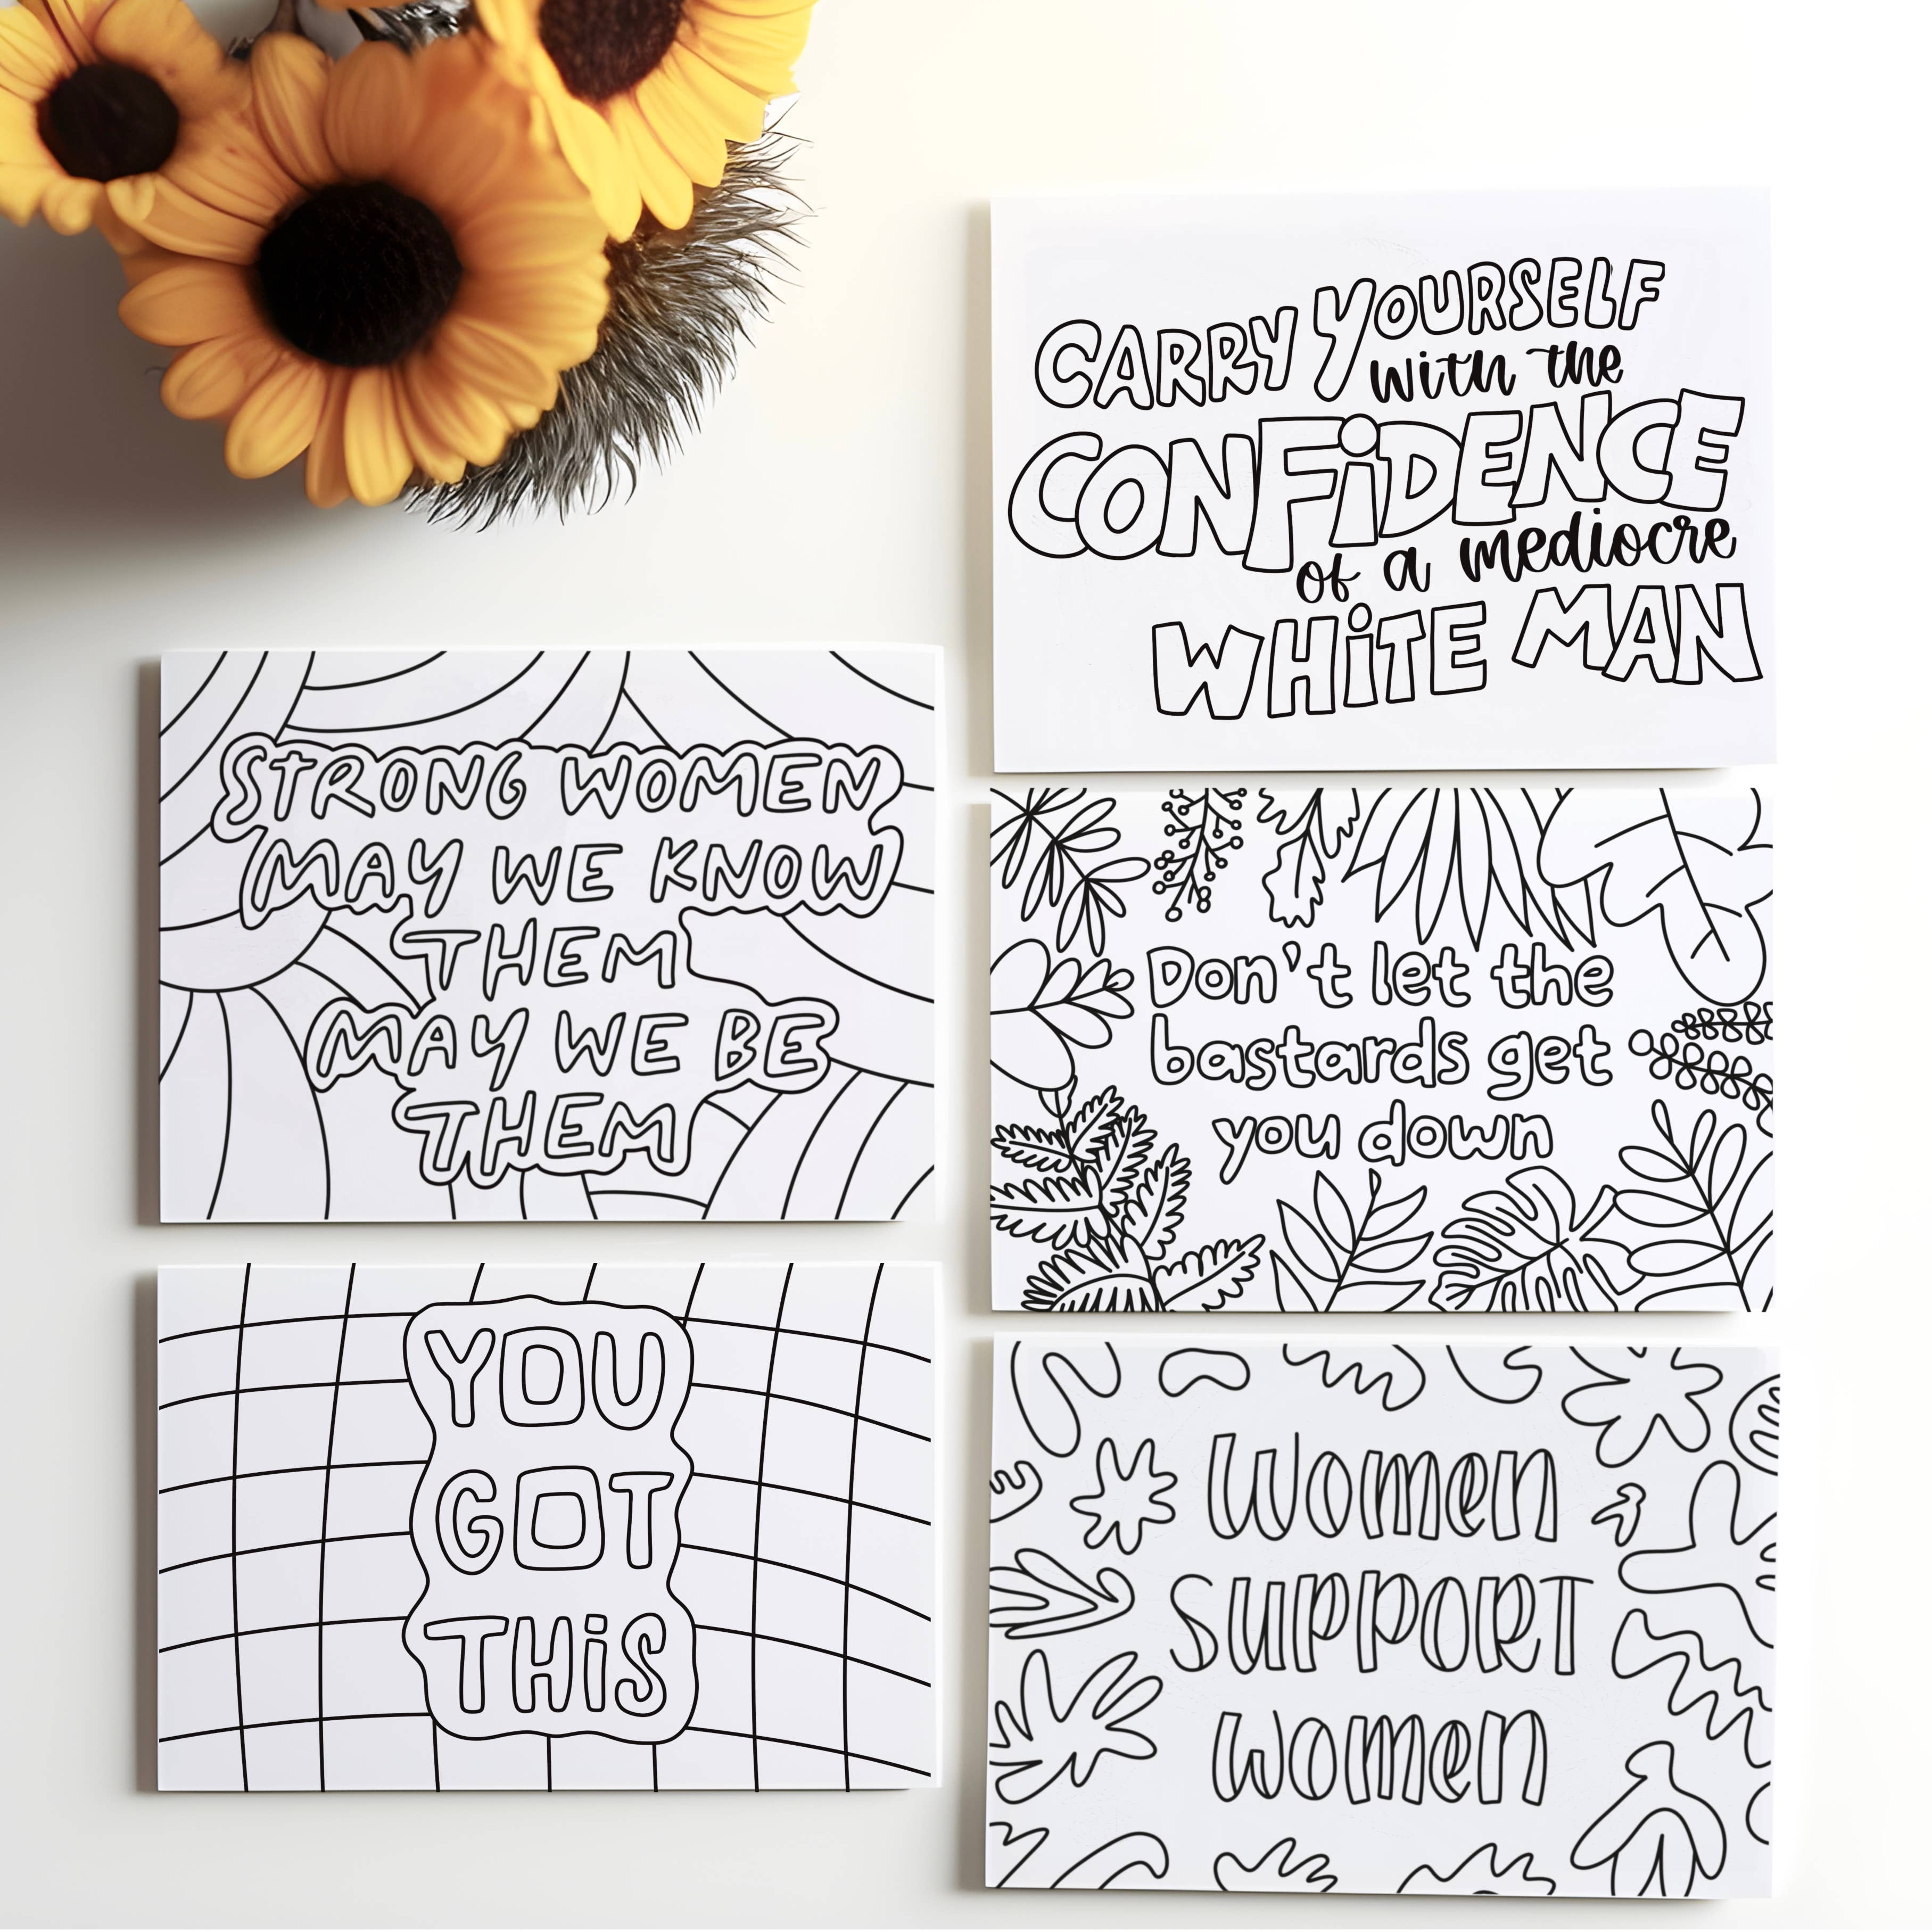 CARRY YOURSELF
with the
CONFiDENCE
of a mediocre
WHiTE MAN
STRONG WOMEN
MAY WE KNOW
THEM
MAY WE BE
THEM
Don't let the
bastards get
you down
YOU
GOT
THiS
Women
SUPPORT
Women